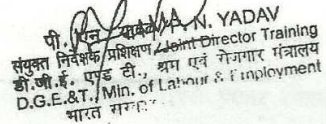 पी. एन. यादव/P. N. YADAV
संयुक्त निदेशक प्रशिक्षण/Joint Director Training
डी.जी.ई. एण्ड टी., श्रम एवं रोजगार मंत्रालय
D.G.E.&T., Min. of Labour & Employment
भारत सरकार